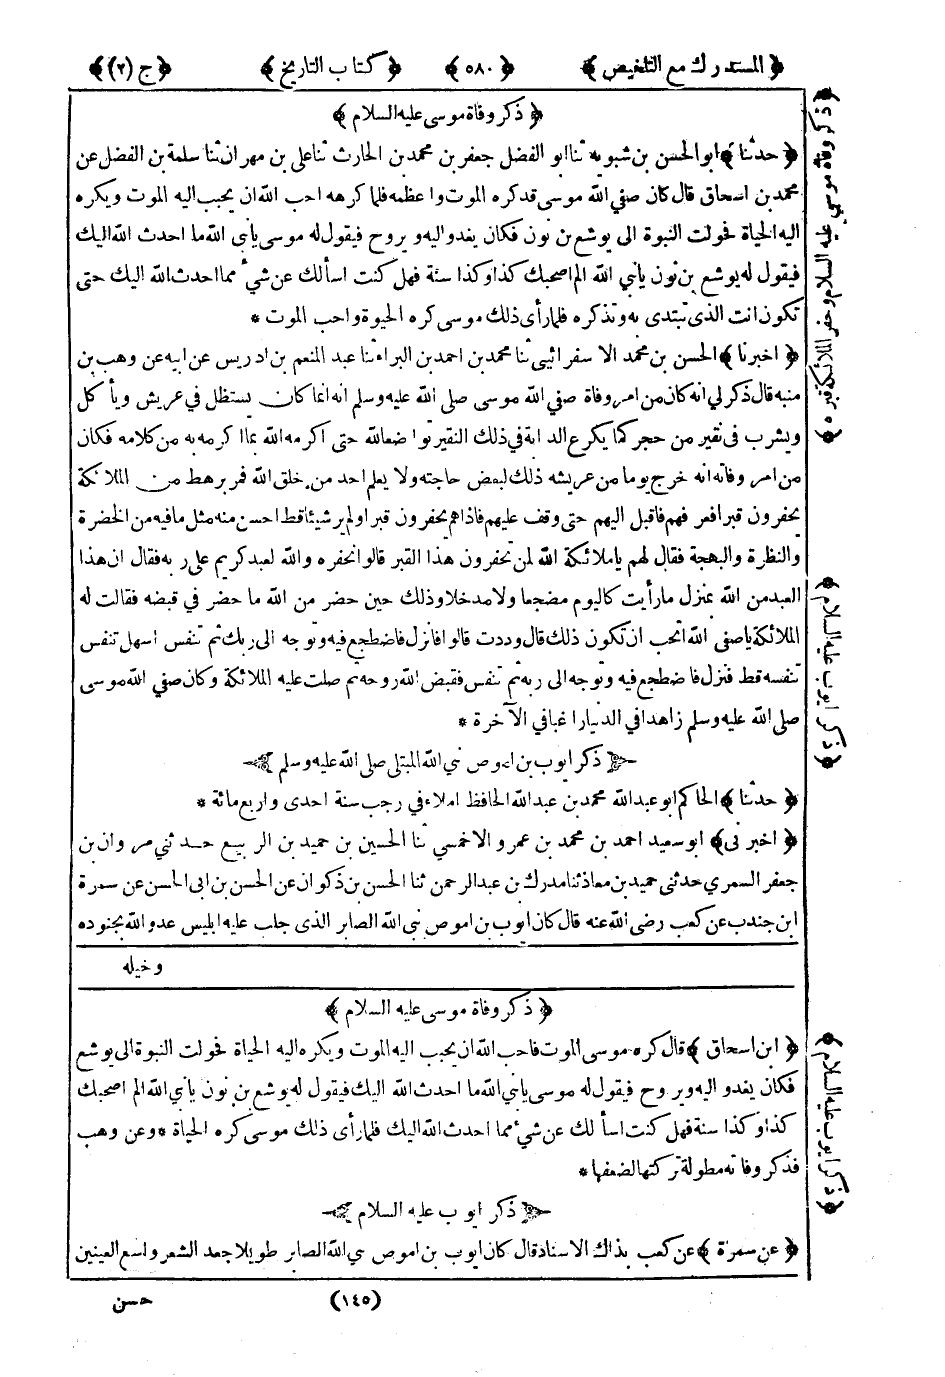 ﴿ المستدرك مع التلخيص ﴾ ﴿ ٥٨٠ ﴾ ﴿ كتاب التاريخ ﴾ ﴿ ج (٢) ﴾
﴿ ذكر وفاة موسى عليه السلام ﴾
﴿ حدثنا ﴾ ابو الحسن بن شبويه ثنا ابو الفضل جعفر بن محمد بن الحارث ثنا علي بن مهران ثنا سلمة بن الفضل عن
محمد بن اسحاق قال كان صفي الله موسى قد كره الموت واعظمه فلما كرهه احب الله ان يحبب اليه الموت ويكره
اليه الحياة فحولت النبوة الى يوشع بن نون فكان يغدو اليه ويروح فيقول له موسى يا نبي الله ما احدث الله اليك
فيقول له يوشع بن نون يا نبي الله الم اصحبك كذا وكذا سنة فهل كنت اسألك عن شيء مما احدث الله اليك حتى
تكون انت الذى تبتدى به وتذكره فلما رأى ذلك موسى كره الحيوة واحب الموت *
﴿ اخبرنا ﴾ الحسن بن محمد الاسفرائيى ثنا محمد بن احمد بن البراء ثنا عبد المنعم بن ادريس عن ابيه عن وهب بن
منبه قال ذكر لي انه كان من امر وفاة صفي الله موسى صلى الله عليه وسلم انه انما كان يستظل في عريش ويأكل
ويشرب فى نقير من حجر كما يكرع الدابة في ذلك النقير تواضعا لله حتى اكرمه الله بما اكرمه به من كلامه فكان
من امر وفاته انه خرج يوما من عريشه ذلك لبعض حاجته ولا يعلم احد من خلق الله فمر برهط من الملائكة
يحفرون قبرا فعرفهم فاقبل اليهم حتى وقف عليهم فاذا هم يحفرون قبرا ولم ير شيئا قط احسن منه مثل ما فيه من الخضرة
والنظرة والبهجة فقال لهم يا ملائكة الله لمن تحفرون هذا القبر قالوا نحفره والله لعبد كريم على ربه فقال ان هذا
العبد من الله بمنزل ما رأيت كاليوم مضجعا ولا مدخلا وذلك حين حضر من الله ما حضر في قبضه فقالت له
الملائكة يا صفى الله اتحب ان تكون ذلك قال وددت قالوا فانزل فاضطجع فيه وتوجه الى ربك ثم تنفس اسهل تنفس
تنفسه قط فنزل فاضطجع فيه وتوجه الى ربه ثم تنفس فقبض الله روحه ثم صلت عليه الملائكة وكان صفي الله موسى
صلى الله عليه وسلم زاهدا في الدنيا راغبا في الآخرة *
ذكر ايوب بن اموص نبي الله المبتلى صلى الله عليه وسلم
﴿ حدثنا ﴾ الحاكم ابو عبد الله محمد بن عبد الله الحافظ املاء في رجب سنة احدى واربع مائة *
﴿ اخبرنى ﴾ ابو سعيد احمد بن محمد بن عمرو الاخمسي ثنا الحسين بن حميد بن الربيع حدثني مروان بن
جعفر السمري حدثني حميد بن معاذ ثنا مدرك بن عبد الرحمن ثنا الحسن بن ذكوان عن الحسن بن ابى الحسن عن سمرة
ابن جندب عن كعب رضى الله عنه قال كان ايوب بن اموص نبي الله الصابر الذى جلب عليه ابليس عدو الله بجنوده
وخيله
﴿ ذكر وفاة موسى عليه السلام ﴾
﴿ ابن اسحاق ﴾ قال كره موسى الموت فاحب الله ان يحبب اليه الموت ويكره اليه الحياة فحولت النبوة الى يوشع
فكان يغدو اليه ويروح فيقول له موسى يا نبي الله ما احدث الله اليك فيقول له يوشع بن نون يا نبي الله الم اصحبك
كذا وكذا سنة فهل كنت اسألك عن شيء مما احدث الله اليك فلما رأى ذلك موسى كره الحياة * وعن وهب
فذكر وفاته مطولة تركتها لضعفها *
ذكر ايوب عليه السلام
﴿ عن سمرة ﴾ عن كعب بذاك الاسناد قال كان ايوب بن اموص نبي الله الصابر طويلا جعد الشعر واسع العينين
(١٤٥) حسن
﴿ ذكر ايوب عليه السلام ﴾
﴿ ذكر ايوب عليه السلام ﴾